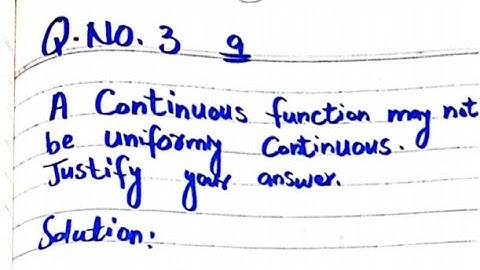 Q.No. 3 9
A Continuous function may not
be uniformly Continuous.
Justify your answer.
Solution: